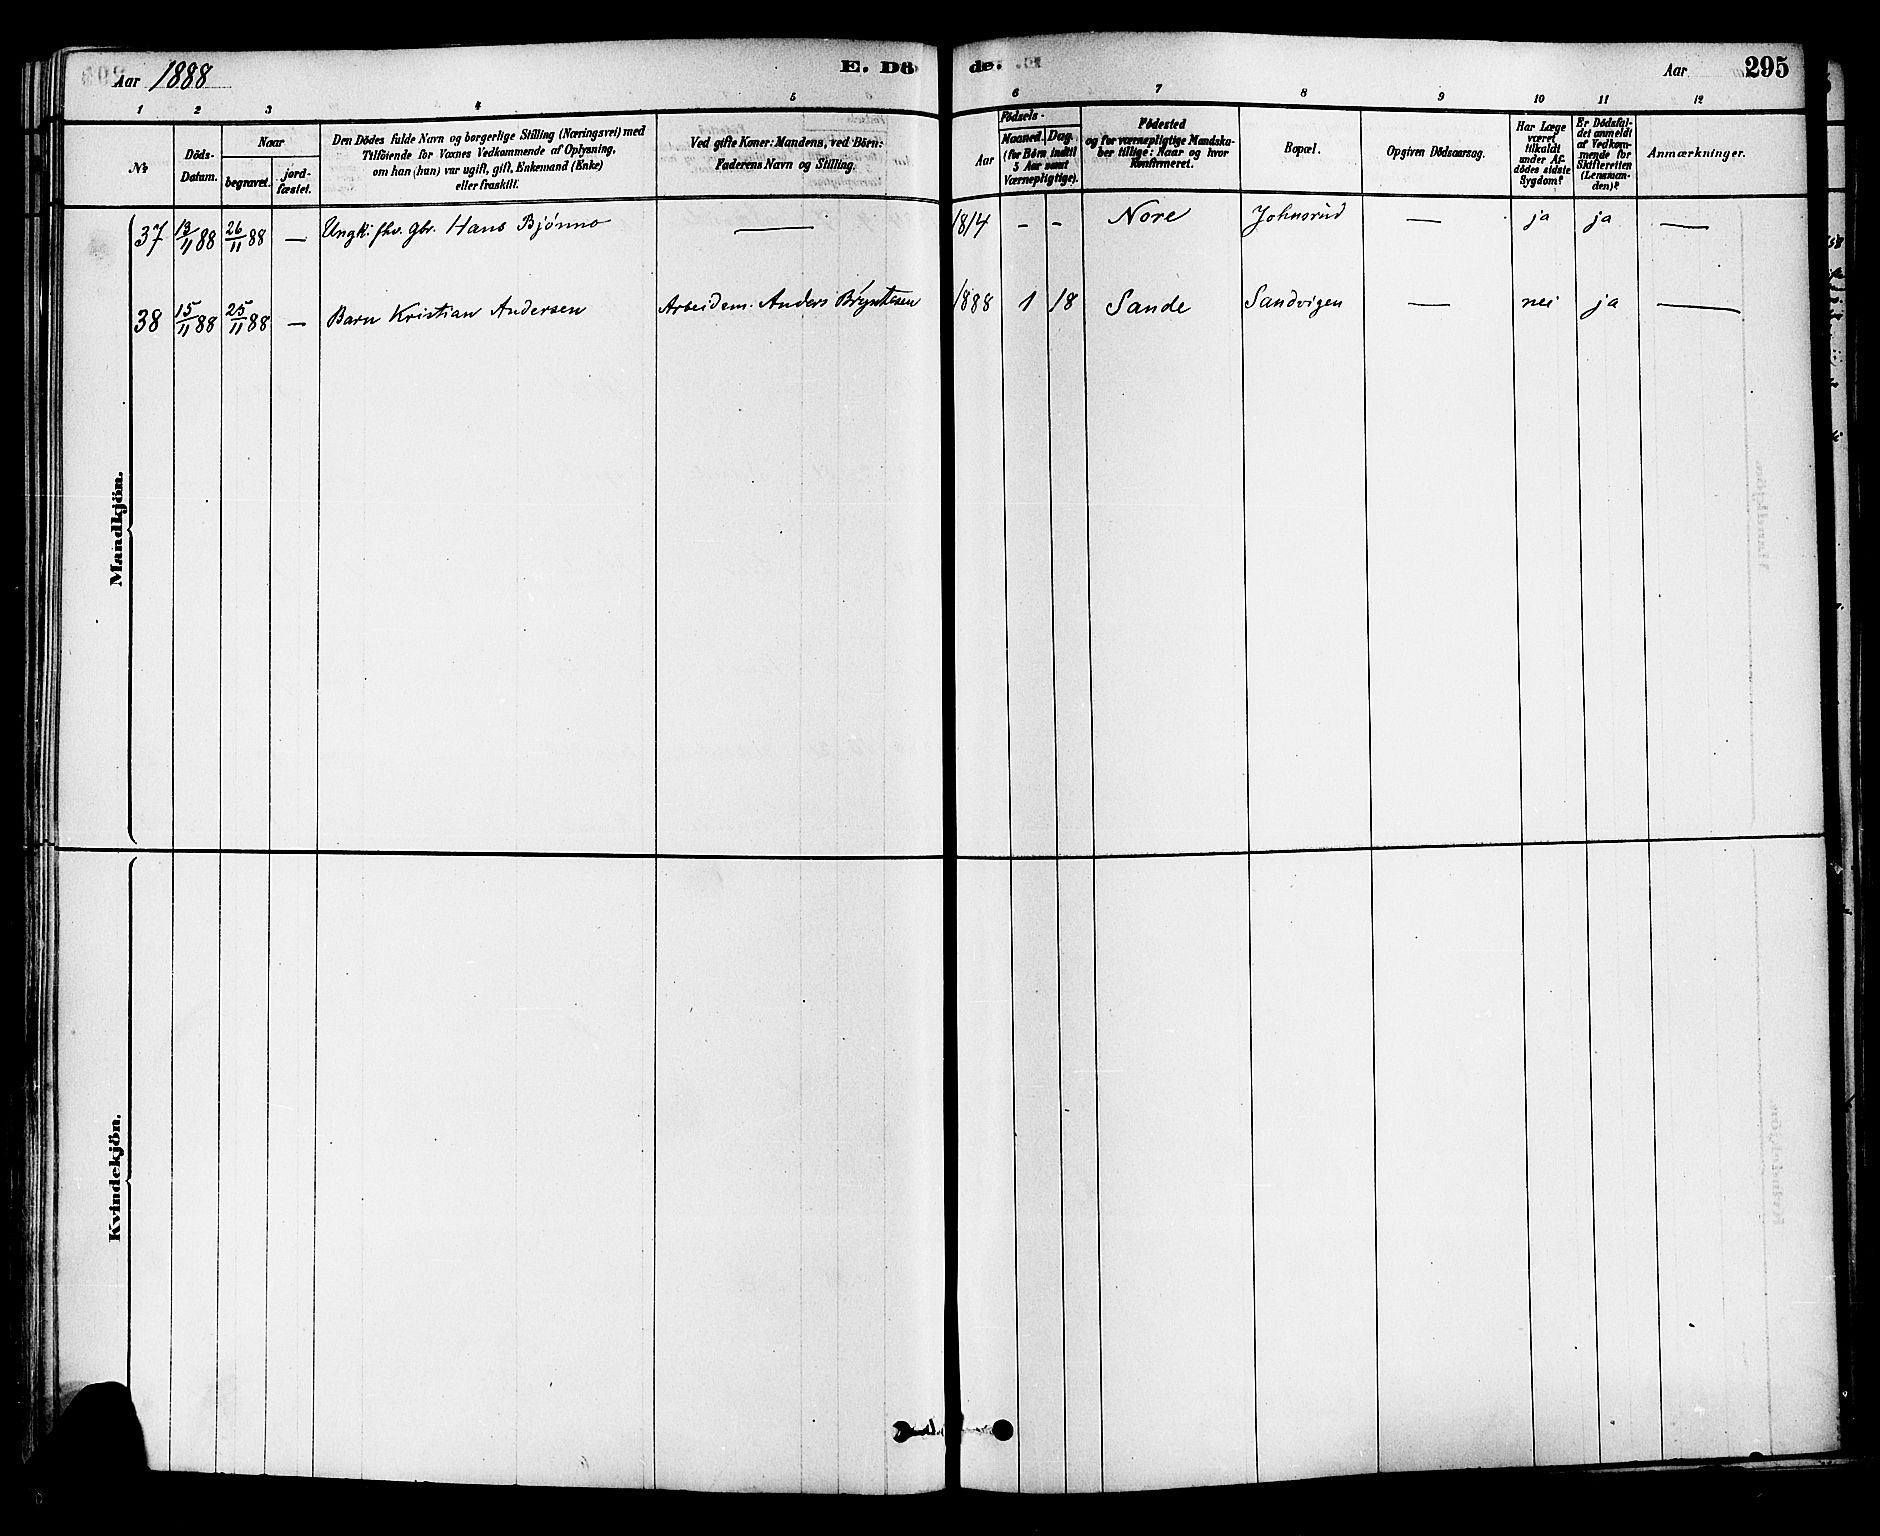 Aar 1888
E. Dö
de.
Aar
295
1 2 3 4 5 6 7 8 9 10 11 12
No
Döds-
Datum.
Naar
begravet.
jord-
fæstet.
Den Dödes fulde Navn og borgerlige Stilling (Næringsvei) med
Tilföiende for Voxnes Vedkommende af Oplysning,
om han (hun) var ugift, gift, Enkemand (Enke)
eller fraskilt.
Ved gifte Koner: Mandens, ved Börn:
Faderens Navn og Stilling.
Födsels-
Aar
Maaned.
Dag.
(for Börn indtil
5 Aar samt
Værnepligtige).
Födested
og for værnepligtige Mandska-
ber tillige: Naar og hvor
Konfirmeret.
Bopæl.
Opgiven Dödsaarsag.
Har Læge
været
tilkaldt
under Af-
dödes sidste
Sygdom?
Er Dödsfal-
det anmeldt
af Vedkom-
mende for
Skifteretten
(Lensman-
den)?
Anmærkninger.
Mandkjön.
37 13/11 88 26/11 88 — Ungk. fhv. gbr. Hans Bjønno — 1814 - - Nore Johnsrud — ja ja —
38 15/11 88 25/11 88 — Barn Kristian Andersen Arbeidsm. Anders Bryntesen 1888 1 18 Sande Sandvigen — nei ja —
Kvindekjön.